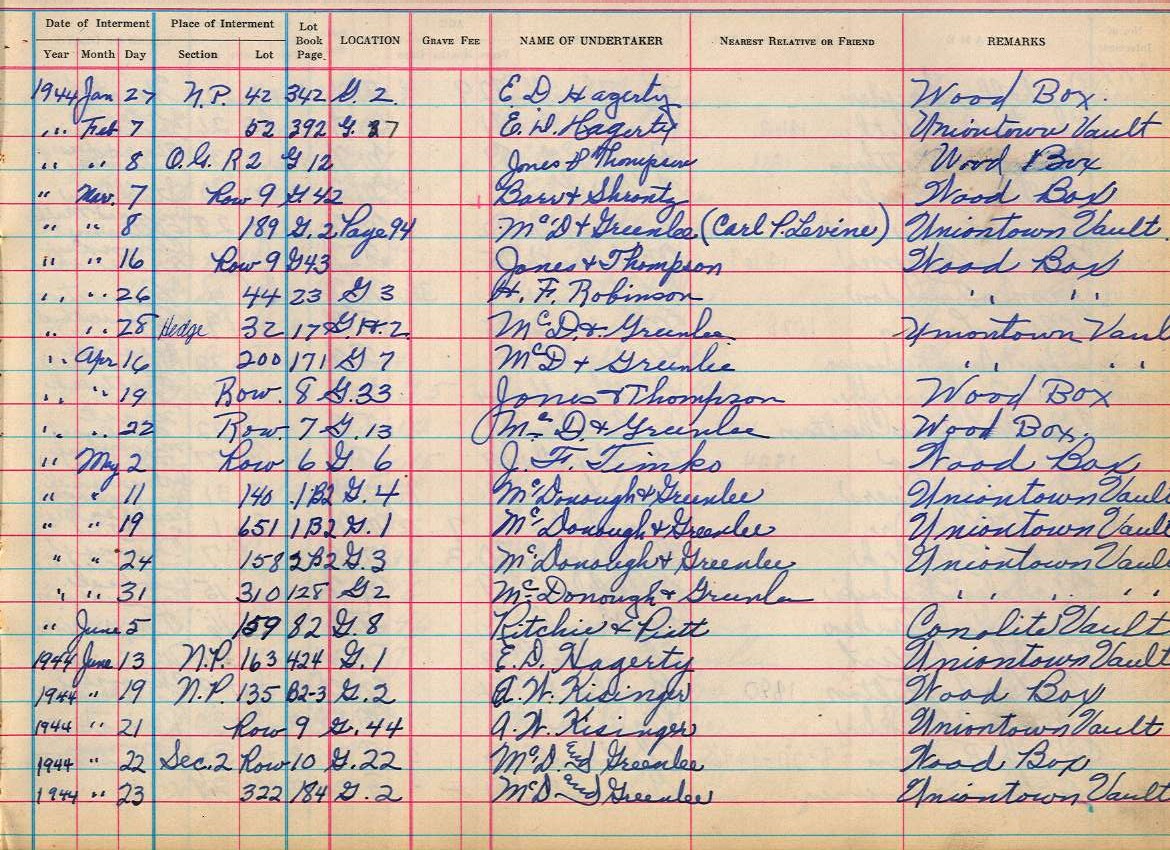 Date of Interment Place of Interment Lot Book Page. LOCATION GRAVE FEE NAME OF UNDERTAKER NEAREST RELATIVE OR FRIEND REMARKS
Year Month Day Section Lot
1944 Jan 27 N.P. 42 342 G. 2. E. D. Hagerty Wood Box.
" Feb 7 52 392 G. 27 E. D. Hagerty Uniontown Vault
" " 8 O.G. R 2 G 12 Jones & Thompson Wood Box
" Mar. 7 Row 9 G. 42 Barr & Shrontz Wood Box
" " 8 189 G. 2 Page 94 McD & Greenlee (Carl P. Levine) Uniontown Vault.
" " 16 Row 9 G43 Jones & Thompson Wood Box
" " 26 44 23 G 3 H. F. Robinson " "
" " 28 Hedge 32 17 G. H. 2. McD. & Greenlee. Uniontown Vaul
" Apr 16 200 171 G 7 McD & Greenlee " "
" " 19 Row. 8 G. 33 Jones & Thompson Wood Box
" " 22 Row. 7 G. 13 Mc D. & Greenlee Wood Box.
" May 2 Row 6 G. 6. J. F. Timko Wood Box
" " 11 140 .1B2 G. 4 McDonough & Greenlee Uniontown Vault
" " 19 651 1B2 G. 1 McDonough & Greenlee Uniontown Vault
" " 24 158 2B2 G. 3 McDonough & Greenlee Uniontown Vault
" " 31 310 128 G 2 McDonough & Greenlee " " " "
" June 5 159 82 G. 8 Ritchie & Piatt Conolite Vault
1944 June 13 N.P. 163 424 G. 1 E. D. Hagerty Uniontown Vault
1944 " 19 N.P. 135 B2-3 G. 2 A. W. Kisinger Wood Box
1944 " 21 Row 9 G. 44 A. W. Kisinger Uniontown Vault
1944 " 22 Sec. 2 Row 10 G. 22 McD. and Greenlee Wood Box
1944 " 23 322 184 G. 2 McD and Greenlee Uniontown Vault